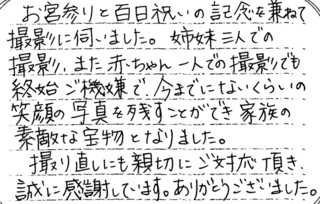 お宮参りと百日祝いの記念を兼ねて
撮影に伺いました。姉妹三人での
撮影、また赤ちゃん一人での撮影でも
終始ご機嫌で、今までにないくらいの
笑顔の写真を残すことができ家族の
素敵な宝物となりました。
撮り直しにも親切にご対応頂き、
誠に感謝しています。ありがとうございました。